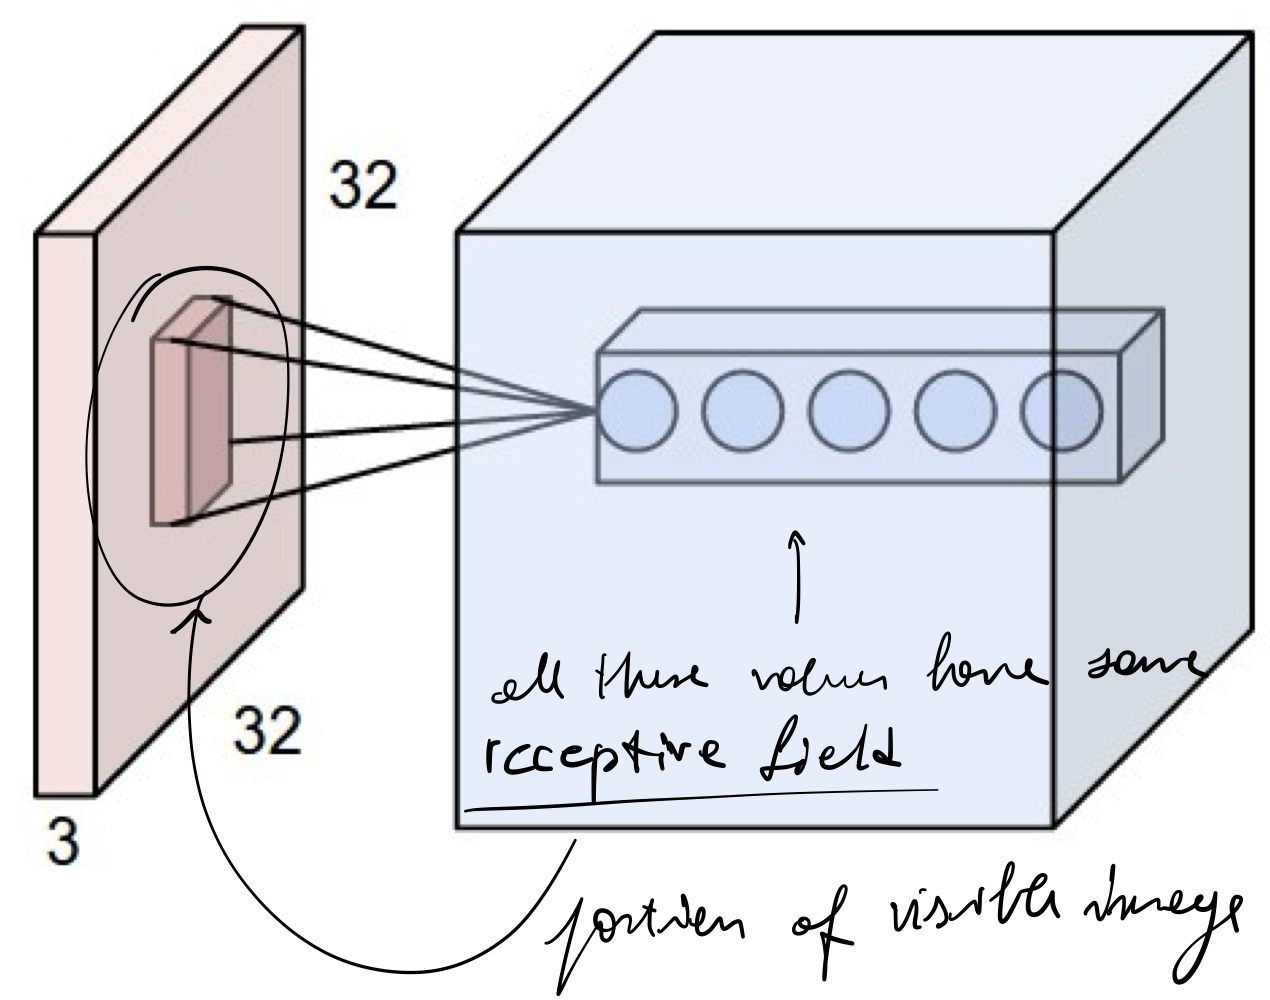 32
32
3
all these values have same
receptive field
portion of visible image